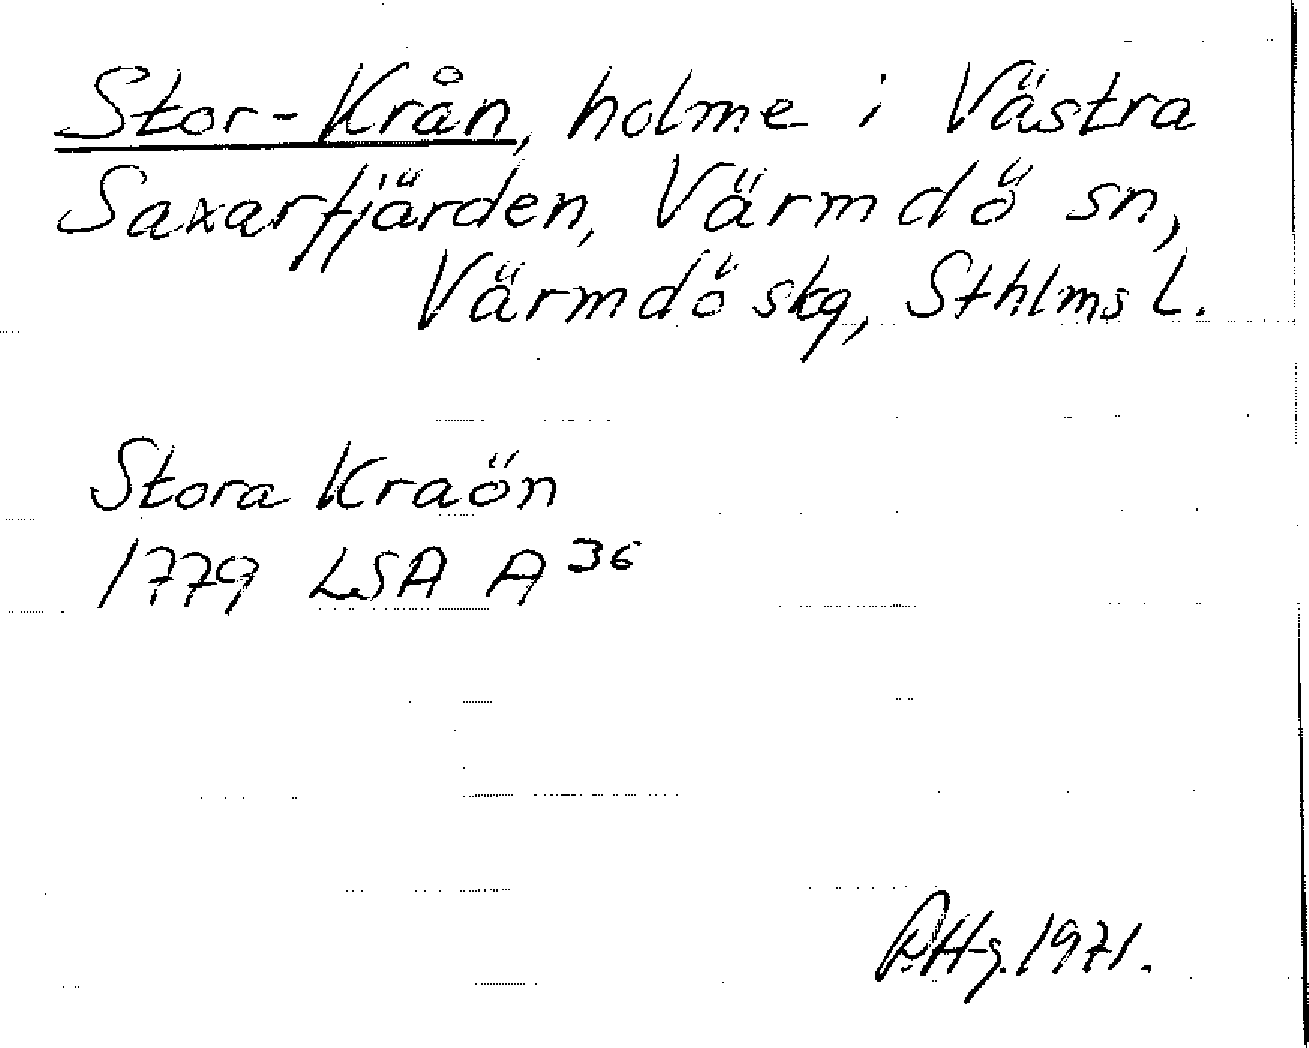 Stor-Krån, holme i Västra
Saxarfjärden, Värmdö sn,
Värmdö skg, Sthlms L.
Stora Kraön
1779 LSA A 36
1971.